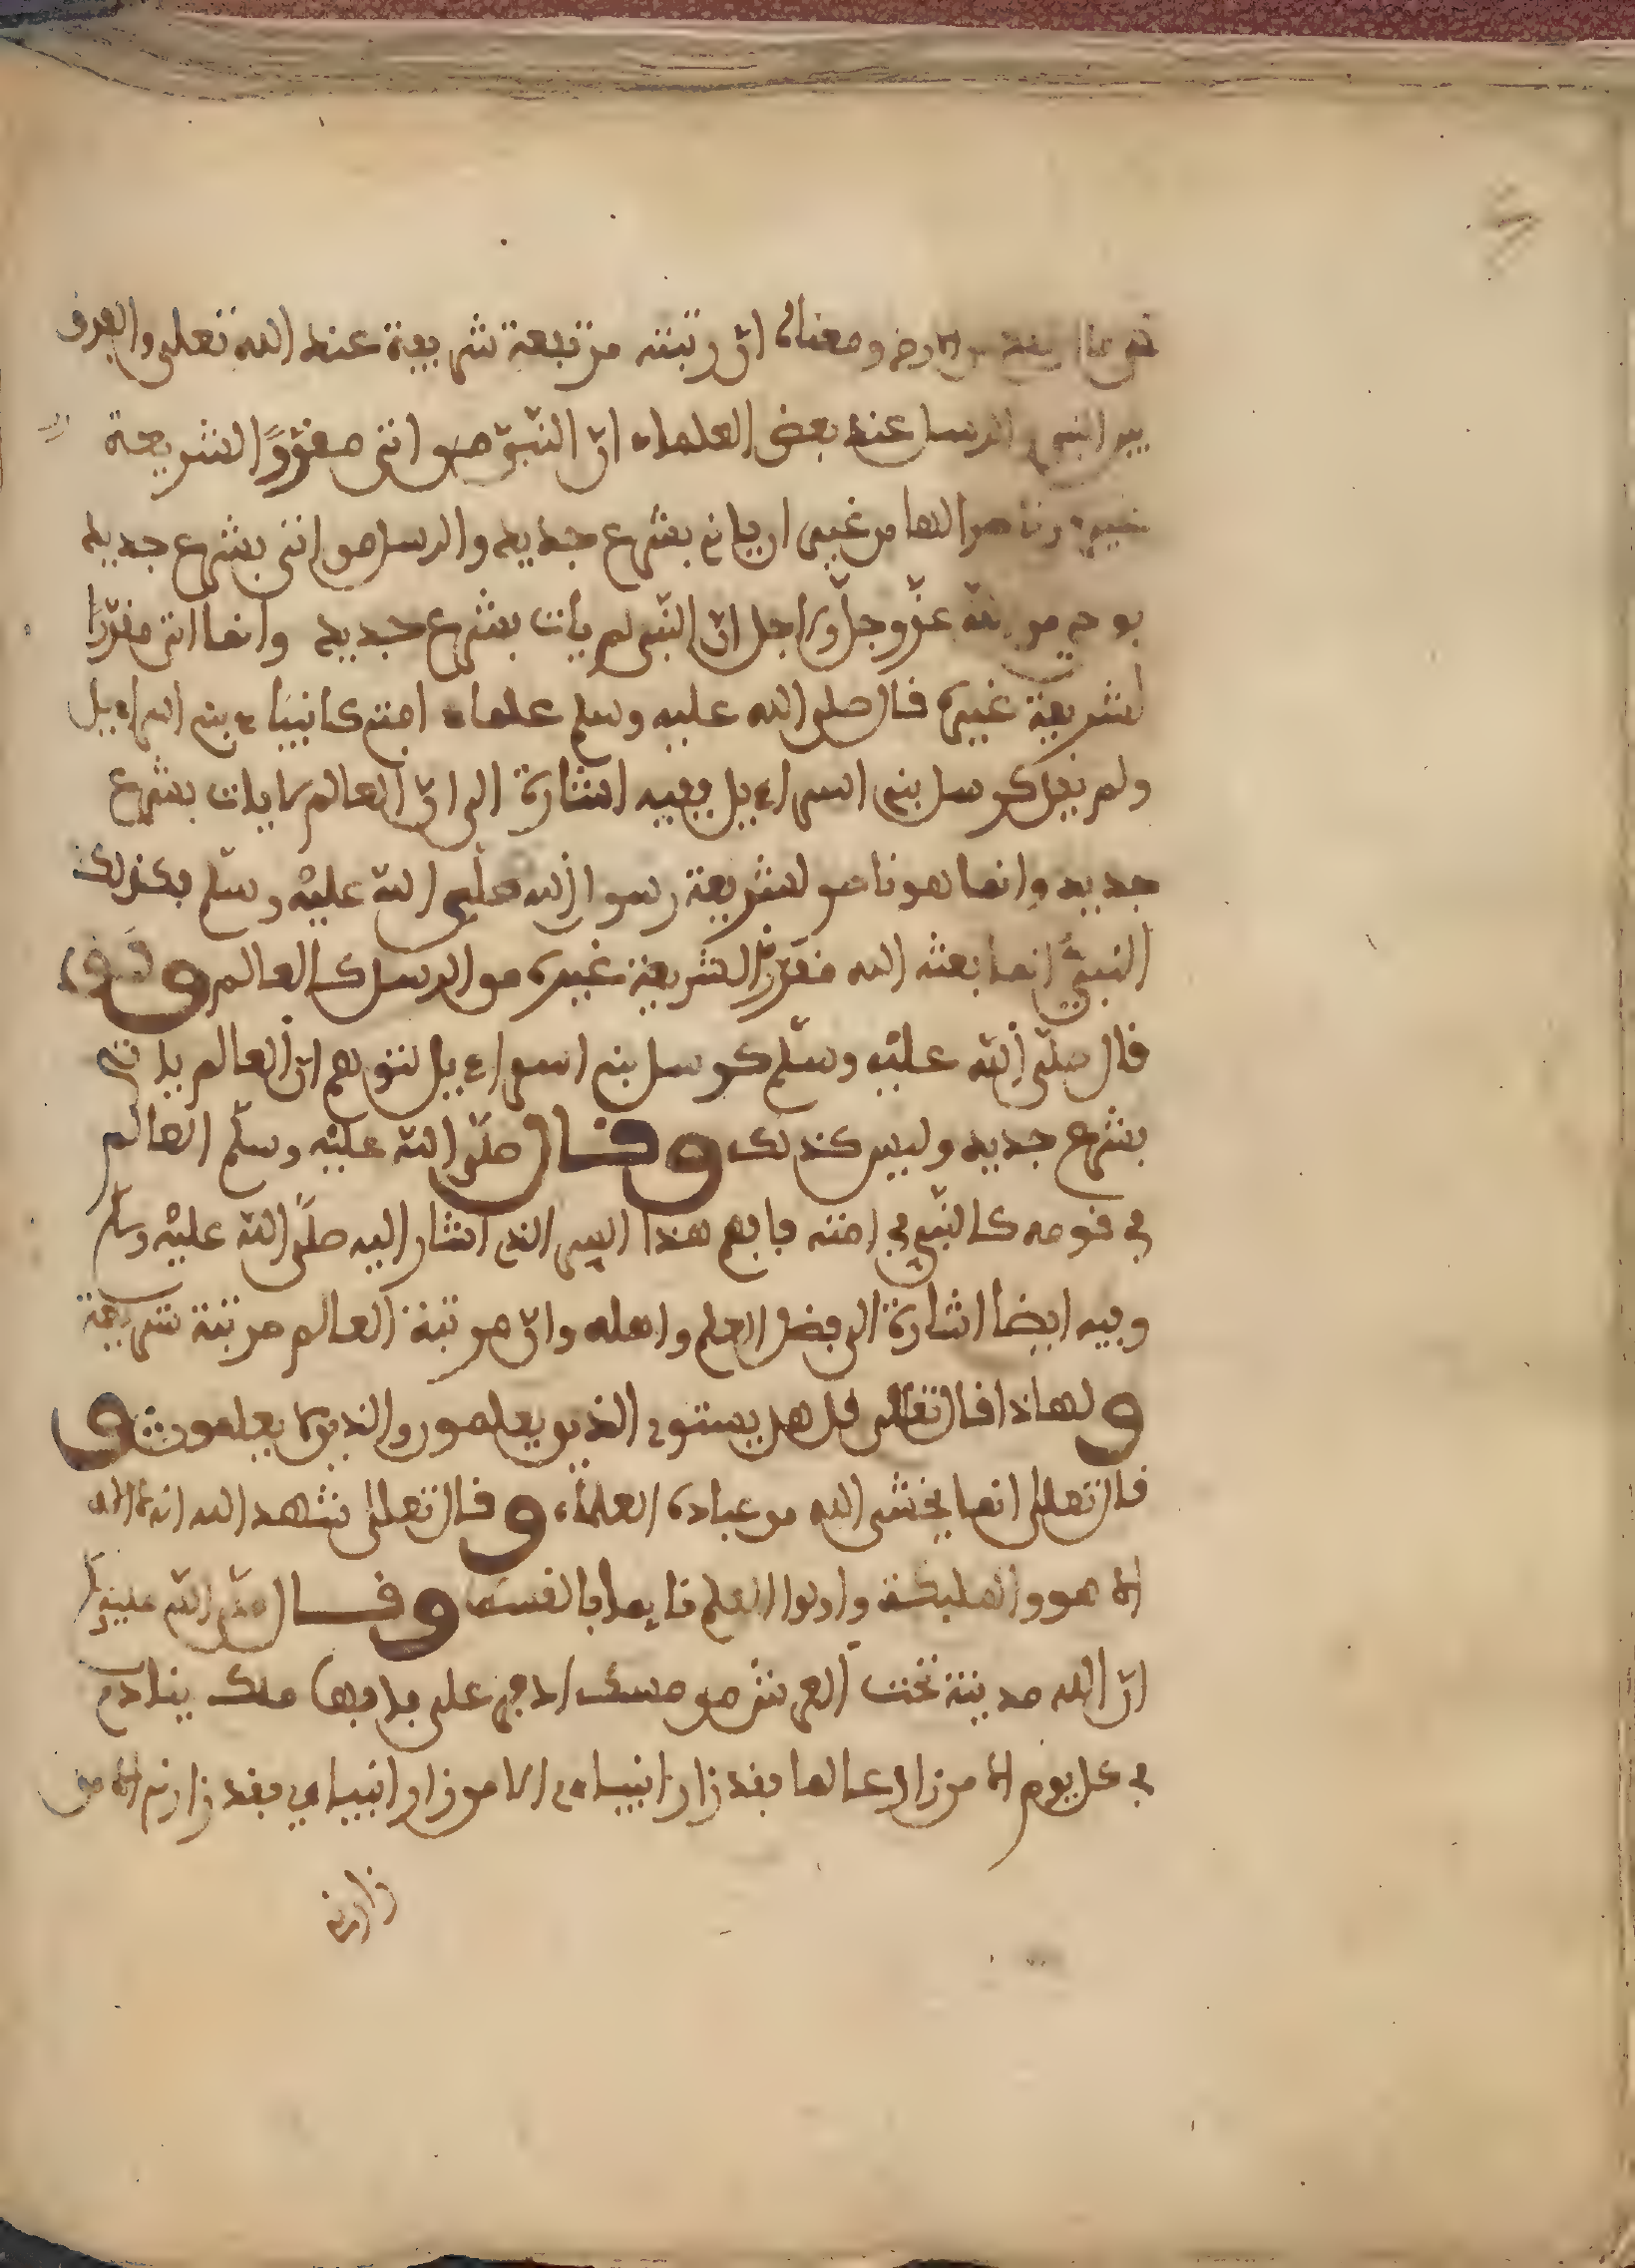 من الارض ومعناه ان رتبته مرتبعة شريفة عند الله تعلى والفرق
بين النبي والرسل عند بعض العلماء ان النبي هو اتى مقررا لشريعة
غيره وناصرا لها من غير ان ياتي بشرع جديد والرسل هو اتى بشرع جديد
بوحي من الله عز وجل ولاجل ان النبي لم يات بشرع جديد وانما اتى مقررا
لشريعة غيره قال صلى الله عليه وسلم علماء امتي كانبياء بني اسراءيل
ولم يقل كرسل بني اسراءيل ففيه اشارة الى ان العالم لا يات بشرع
جديد وانما هو ناصر لشريعة رسول الله صلى الله عليه وسلم فكذلك
النبي انما بعثه الله مقررا لشريعة غيره من الرسل كالعالم ولو
قال صلى الله عليه وسلم كرسل بني اسراءيل لتوهم ان العالم ياتي
بشرع جديد وليس كذلك وقال صلى الله عليه وسلم العالم
في قومه كالنبي في امته فابهم هذا السر الذي اشار اليه صلى الله عليه وسلم
وفيه ايضا اشارة الى فضل العلم واهله وان مرتبة العالم مرتبة شريفة
ولهاذا قال تعالى قل هل يستوي الذين يعلمون والذين لا يعلمون و
قال تعلى انما يخشى الله من عباده العلماء وقال تعلى شهد الله انه لا اله
الا هو والمليكة واولوا العلم قايما بالقسط وقال صلى الله عليه
ان لله مدينة تحت العرش من مسك اذفر على بابها ملك ينادي
في كل يوم الا من زار عالما فقد زار انبياءي الا من زار انبياءي فقد زارني الا من
زارني